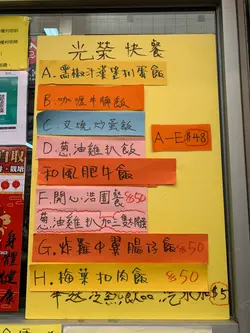 光榮快餐
A. 黑椒汁漢堡扒蛋飯
B. 咖喱牛腩飯
C. 叉燒炒蛋飯
D. 蔥油雞扒飯
A-E $48
和風肥牛飯
F. 開心湯圓餐 $50
蔥油雞扒加三隻
G. 炸羅中翼腸仔飯 $50
H. 梅菜扣肉飯 $50
汽水加$5
身體健康